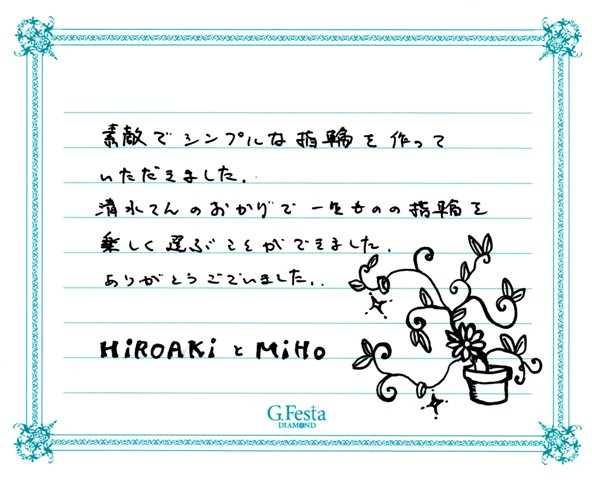 素敵でシンプルな指輪を作って
いただきました.
清水さんのおかげで一生ものの指輪を
楽しく選ぶことができました.
ありがとうございました..
HiROAKiとMiHo
G.Festa
DIAMOND